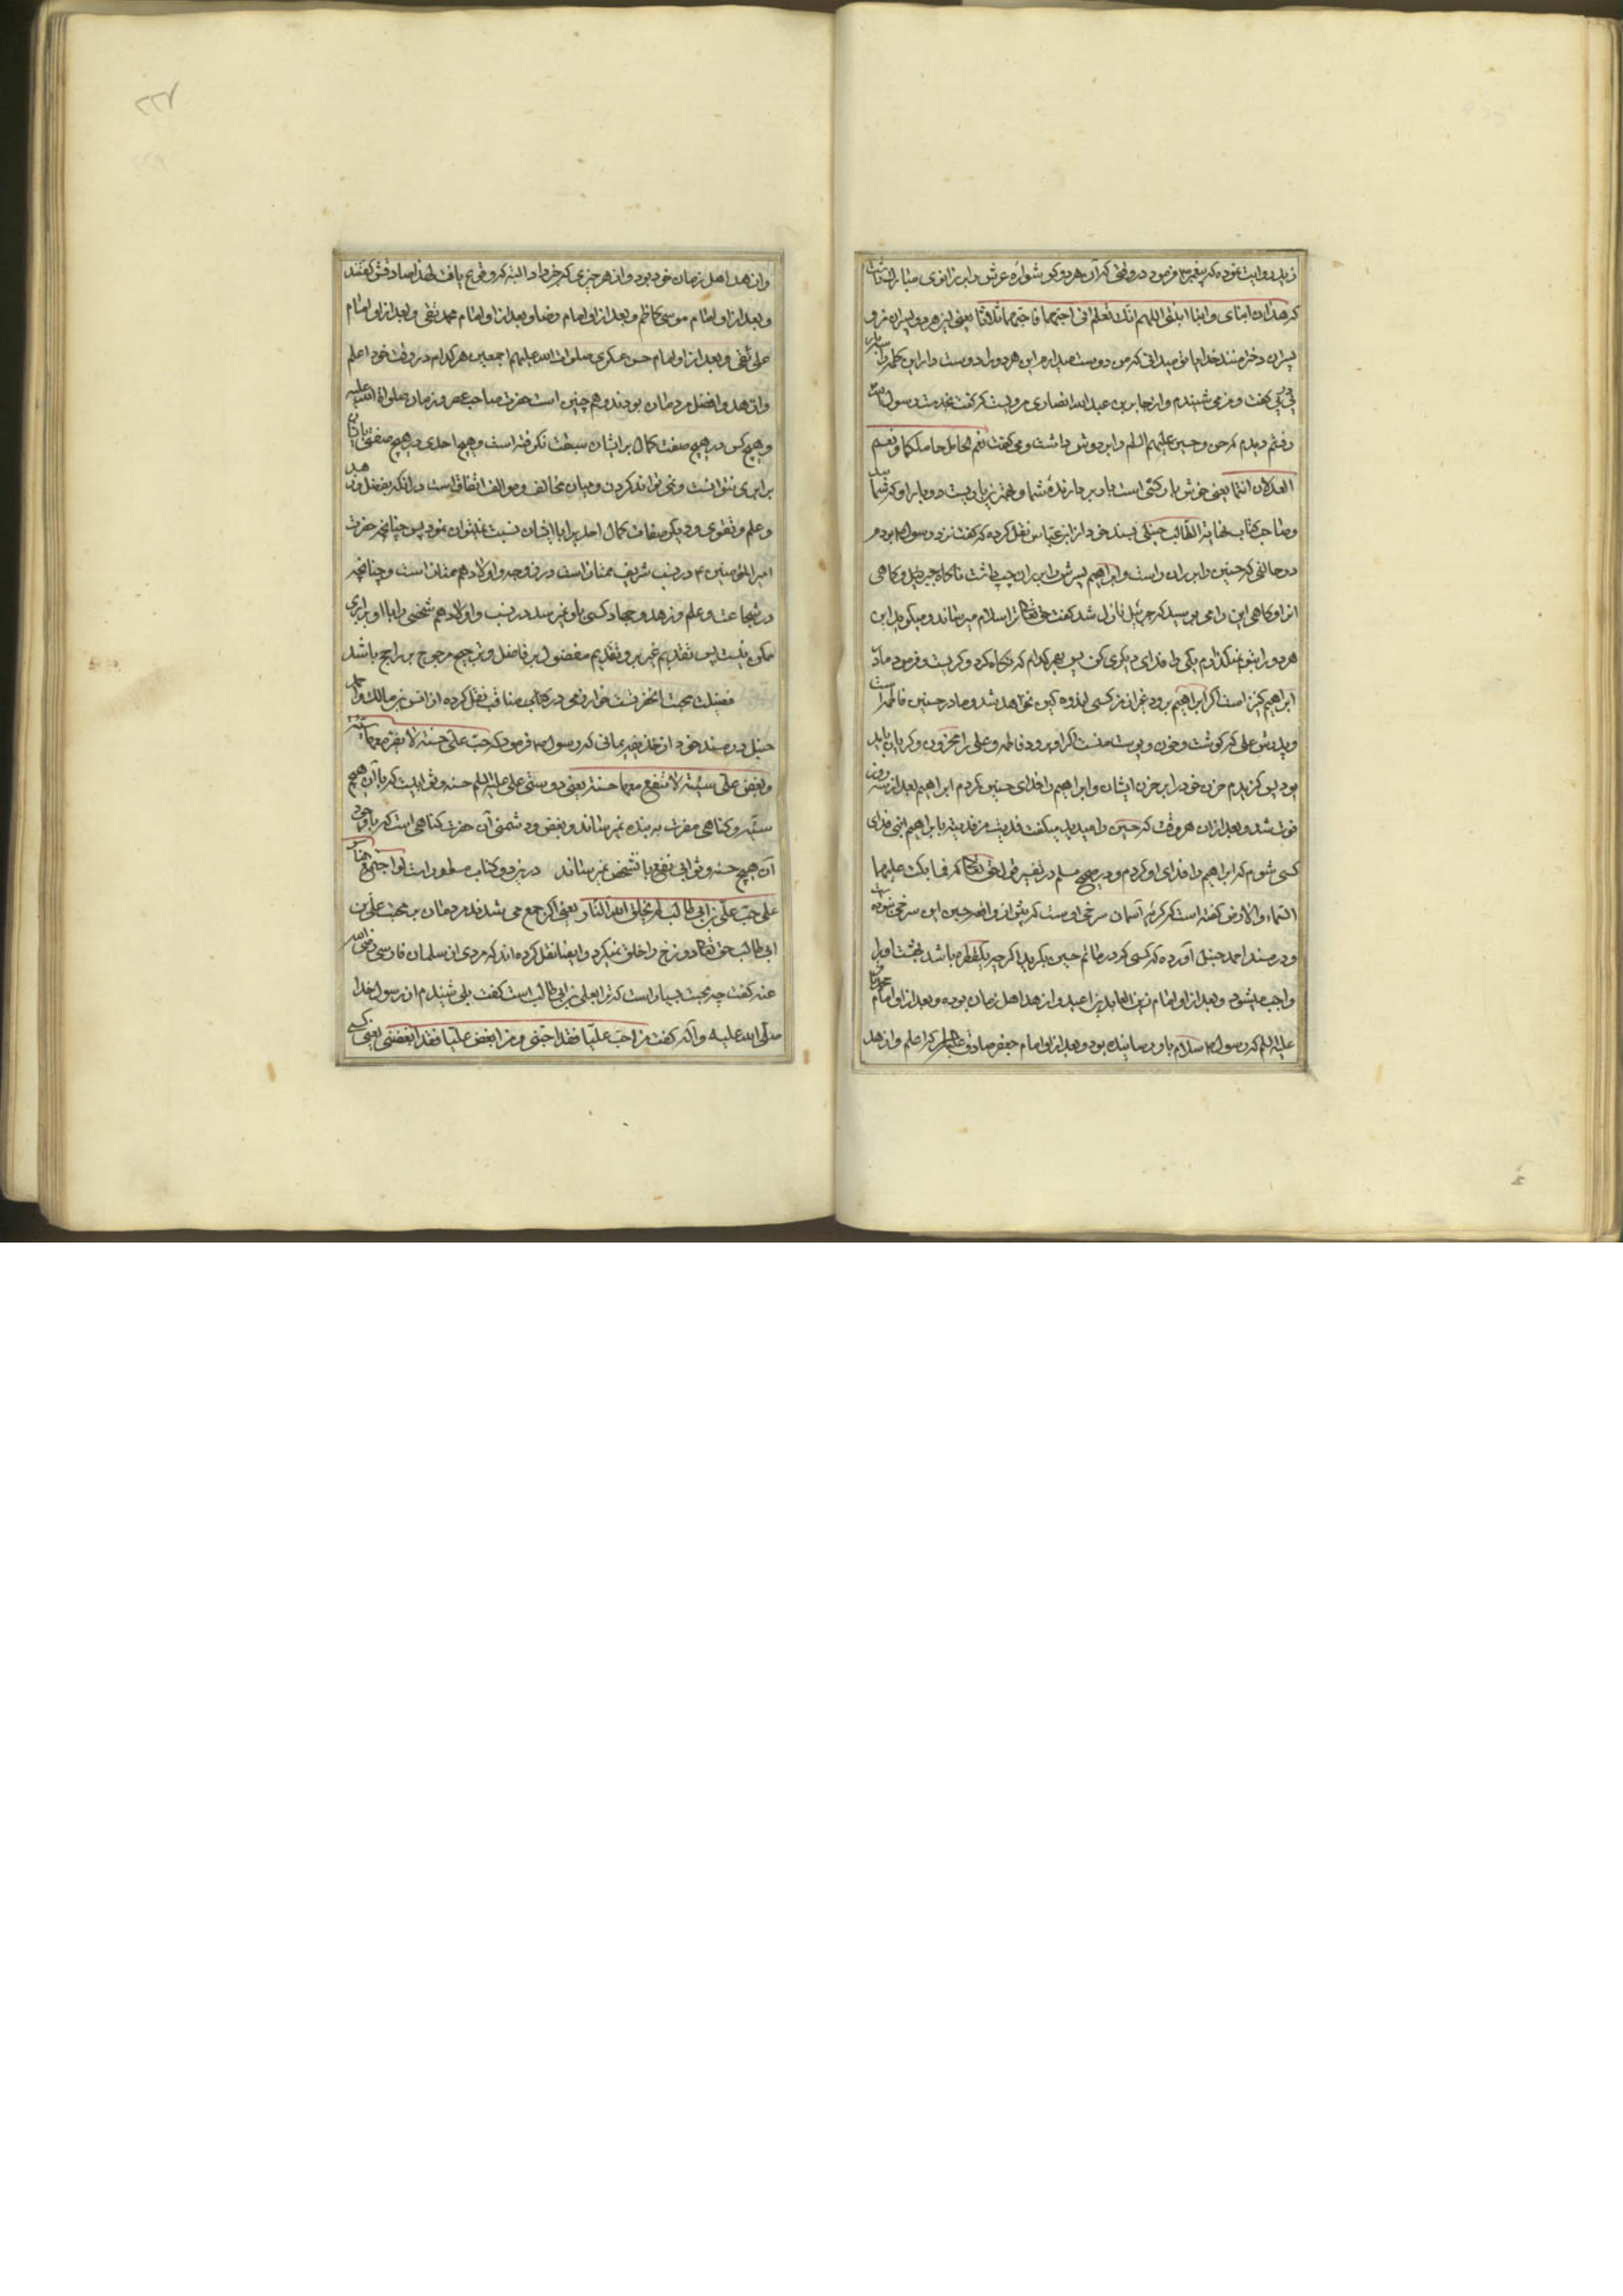 زید روایت نموده که پیغمبر ص فرمود در وقتی که آن هر دو گوشواره عرش را بر زانوی مبارک داشت
که هذان ابنای و ابنا ابنتی اللهم انک تعلم انی احبهما فاحبهما ثلاثا یعنی این هر دو پسران من و
پسران دختر منند خدایا تو میدانی که من دوست میدارم این هر دو را دوست دار این کلمه را سه بار
پی در پی گفت و من می شنیدم و از جابر بن عبدالله انصاری مرویست که گفت بخدمت رسول ص
رفتم دیدم که حسن و حسین علیهم السلم را بر دوش داشت و می گفت نعم الحامل حاملکما و نعم
العدلان انتما یعنی خوش بارکشی است بار بردارنده شما و
وصاحب کتاب نهایة الطالب حنبلی بسند خود از ابن عباس نقل کرده که گفت نزد رسول ص بودم
در حالتی که حسین را بر ران راست و ابراهیم پسرش را بر ران چپ داشت ناگاه جبرئیل و گاهی
این را و گاهی این را می بوسید که جبرئیل نازل شد گفت حق تعالی ترا سلام میرساند و میگوید این
هر دو را بتو نمیگذارم یکی را فدای دیگری کن پس بهر کدام که نگاه کرد و گریست و فرمود مادر
ابراهیم کنیز است اگر ابراهیم برود غیر از من کسی اندوهگین نخواهد شد و مادر حسین فاطمه است
و پدرش علی که گوشت و خون و پوست منست اگر او برود فاطمه و علی را محزون و گریان باید
بود پس گزیدم حزن خود را بر حزن ایشان و ابراهیم را فدای حسین کردم ابراهیم بعد از سه روز
فوت شد و بعد از آن هر وقت که حسین را میدید میگفت فدیت من فدیته بابراهیم ابنی فدای
کسی شوم که ابراهیم را فدای او کردم و در صحیح مسلم در تفسیر قول حق تعالی که فما بکت علیهما
السماء و الارض گفته است که گریه آسمان سرخی اوست که پیش از واقعه حسین این سرخی نبوده
و در مسند احمد حنبل آورده که کسی که در ماتم حسین بگرید اگر چه یکقطره باشد بهشت او را
واجب میشود و بعد از او امام زین العابدین اعبد و ازهد اهل زمان بوده و بعد از او امام محمد باقر
علیه السلم که رسول ص سلام باو رسانیده بود و بعد از او امام جعفر صادق علیه السلام که اعلم و ازهد
وازهد اهل زمان خود بود و از هر چیزی که خبر داد البته که وقوع یافت لهذا صادقش گفتند
و بعد از او امام موسی کاظم و بعد از او امام رضا و بعد از او امام محمد تقی و بعد از او امام
علی نقی و بعد از او امام حسن عسکری صلوات الله علیهم اجمعین هر کدام در وقت خود اعلم
وازهد و افضل مردمان بودند و هم چنین است حضرت صاحب عصر و زمان صلوات الله علیه
و هیچ کس در هیچ صفت کمال بر ایشان سبقت نگرفته است و هیچ احدی در هیچ صفتی با ایشان
برابری نتوانست و نمی تواند کردن و میان مخالف و موالف اتفاق است در انکه بفضل و زهد
و علم و تقوی و دیگر صفات کمال احدیرا با ایشان نسبت نمیتوان نمود پس چنانچه حضرت
امیرالمؤمنین ع در نسب شریف ممتاز است در زوجه و اولاد هم ممتاز است و چنانچه
در شجاعت و علم و زهد و جهاد کسی باو نمیرسد در نسب و اولاد هم شخصی را با او برابری
ممکن نیست پس تقدیم غیر برو تقدیم مفضول بر فاضل و ترجیح مرجوح بر راجح باشد
فضیلت محبت انحضرت خوارزمی در کتاب مناقب نقل کرده از انس بن مالک و احمد
حنبل در مسند خود از حذیفه یمانی که رسول ص فرمود که حب علی حسنة لا یضر معها سیئة
و بغض علی سیئة لا تنفع معها حسنة یعنی دوستی علی علیه السلم حسنه و ثوابیست که با آن هیچ
سیئه و گناهی مضرت به بنده نمیرساند و بغض و دشمنی آن حضرت گناهی است که با وجود
آن هیچ حسنه و ثوابی نفع بآن شخص نمیرساند در هر دو کتاب مسطور است لو اجتمع الناس
علی حب علی بن ابی طالب لم یخلق الله النار یعنی اگر جمع می شدند مردمان به محبت علی بن
ابی طالب حق تعالی دوزخ را خلق نمیکرد و ایضا نقل کرده اند که مردی از سلمان فارسی رضی الله
عنه گفت چه محبت بسیار است که ترا بعلی بن ابی طالب است گفت بلی شنیدم از رسول خدا
صلی الله علیه و آله که گفت من احب علیا فقد احبنی و من ابغض علیا فقد ابغضنی یعنی کسی